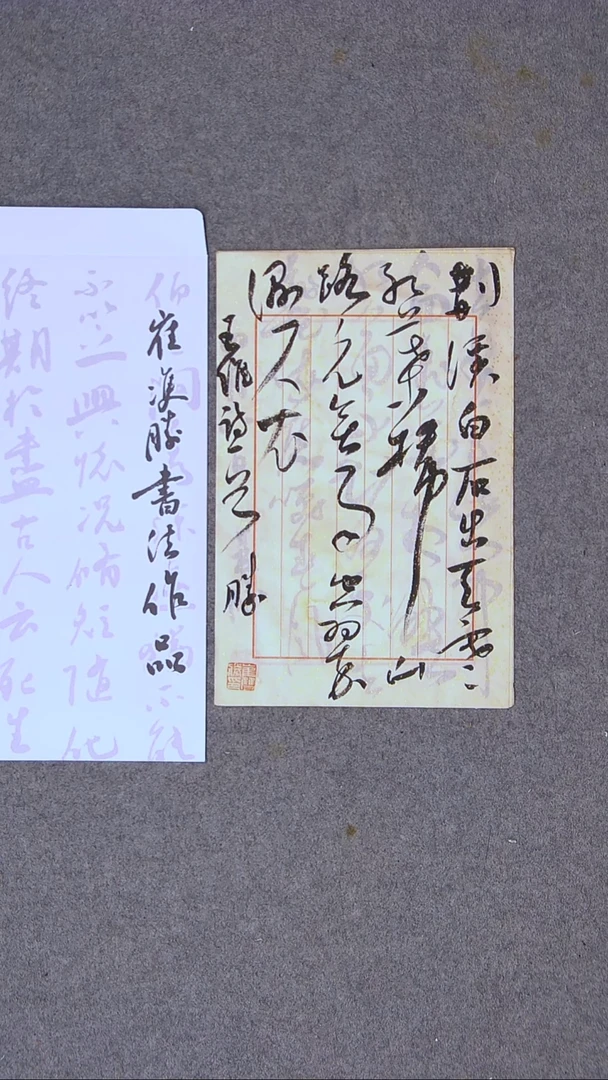 荆溪白石出天寒
紅葉稀山
路元無雨空翠
濕人衣
王維詩
勝
崔
勝書法作品
不能
不以之興懷况脩短隨化
終期於盡古人云死生